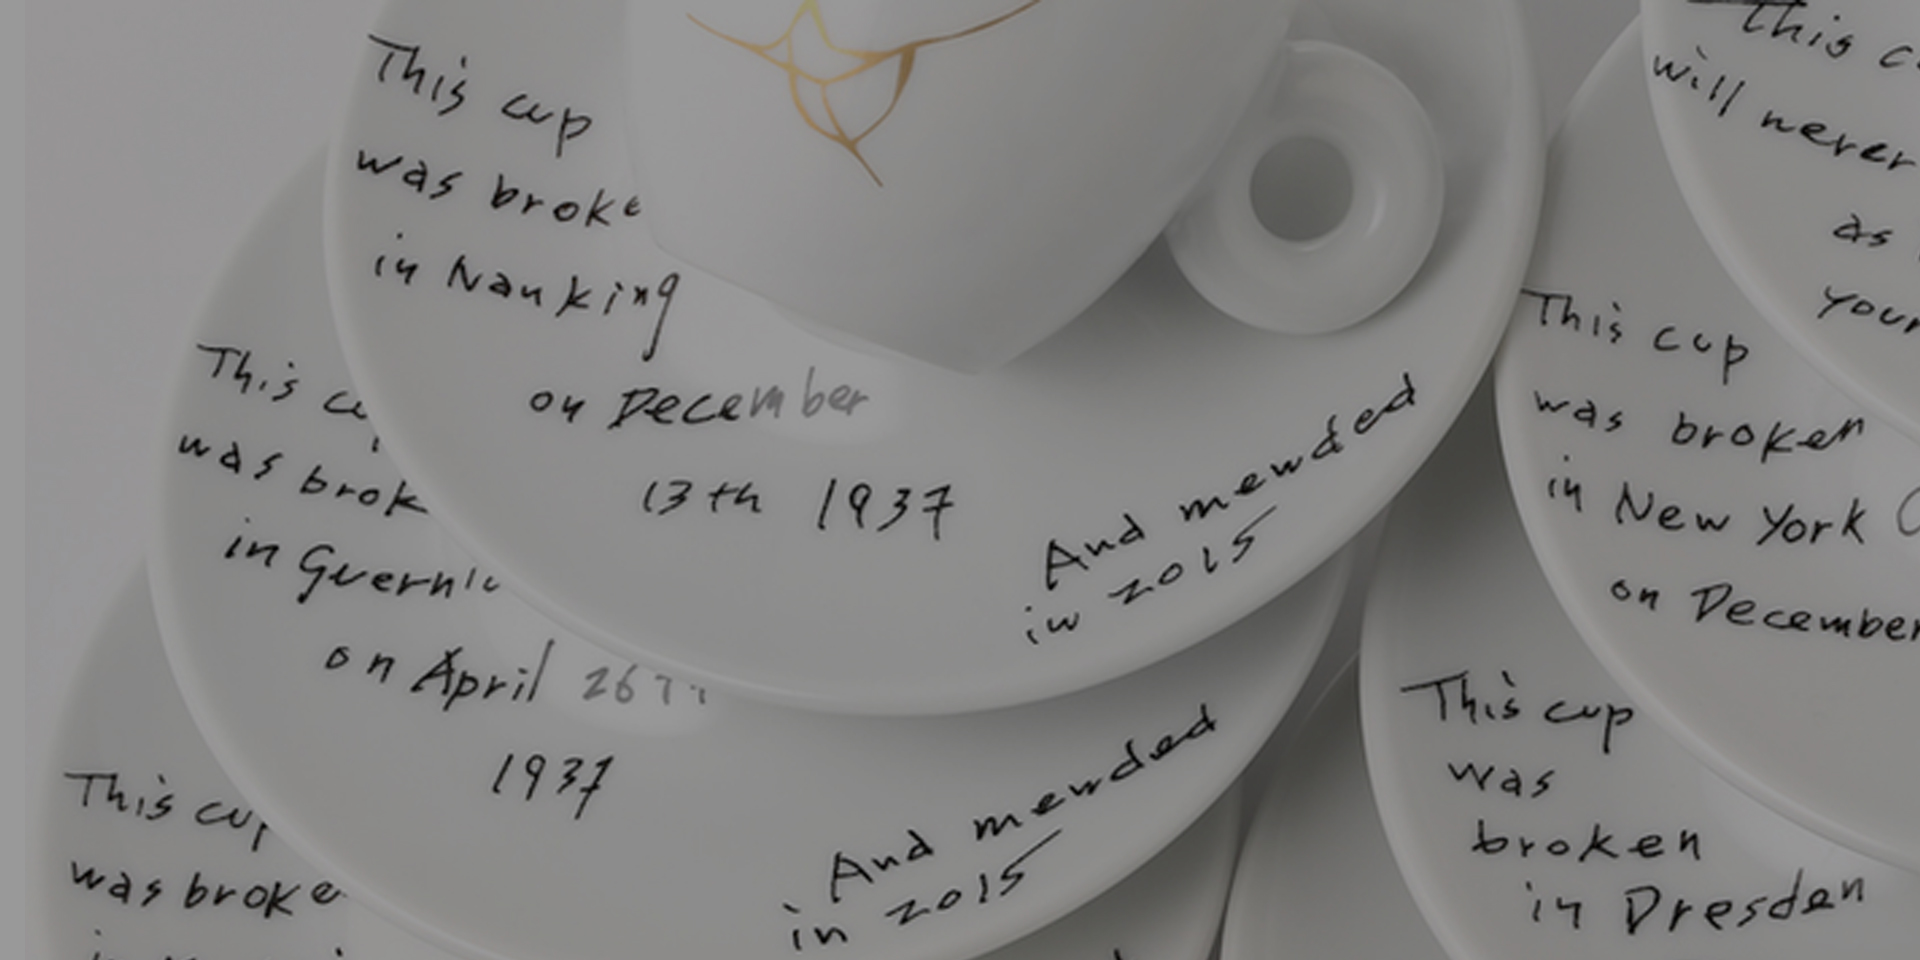 This cup
was broke
in Nanking
on December
13th 1937
And mended
in 2015
This
was brok
in Guernic
on April 26
1937
And mended
in 2015
This cup
was broke
This
will never
as
your
This cup
was broken
in New York
on December
This cup
was
broken
in Dresden